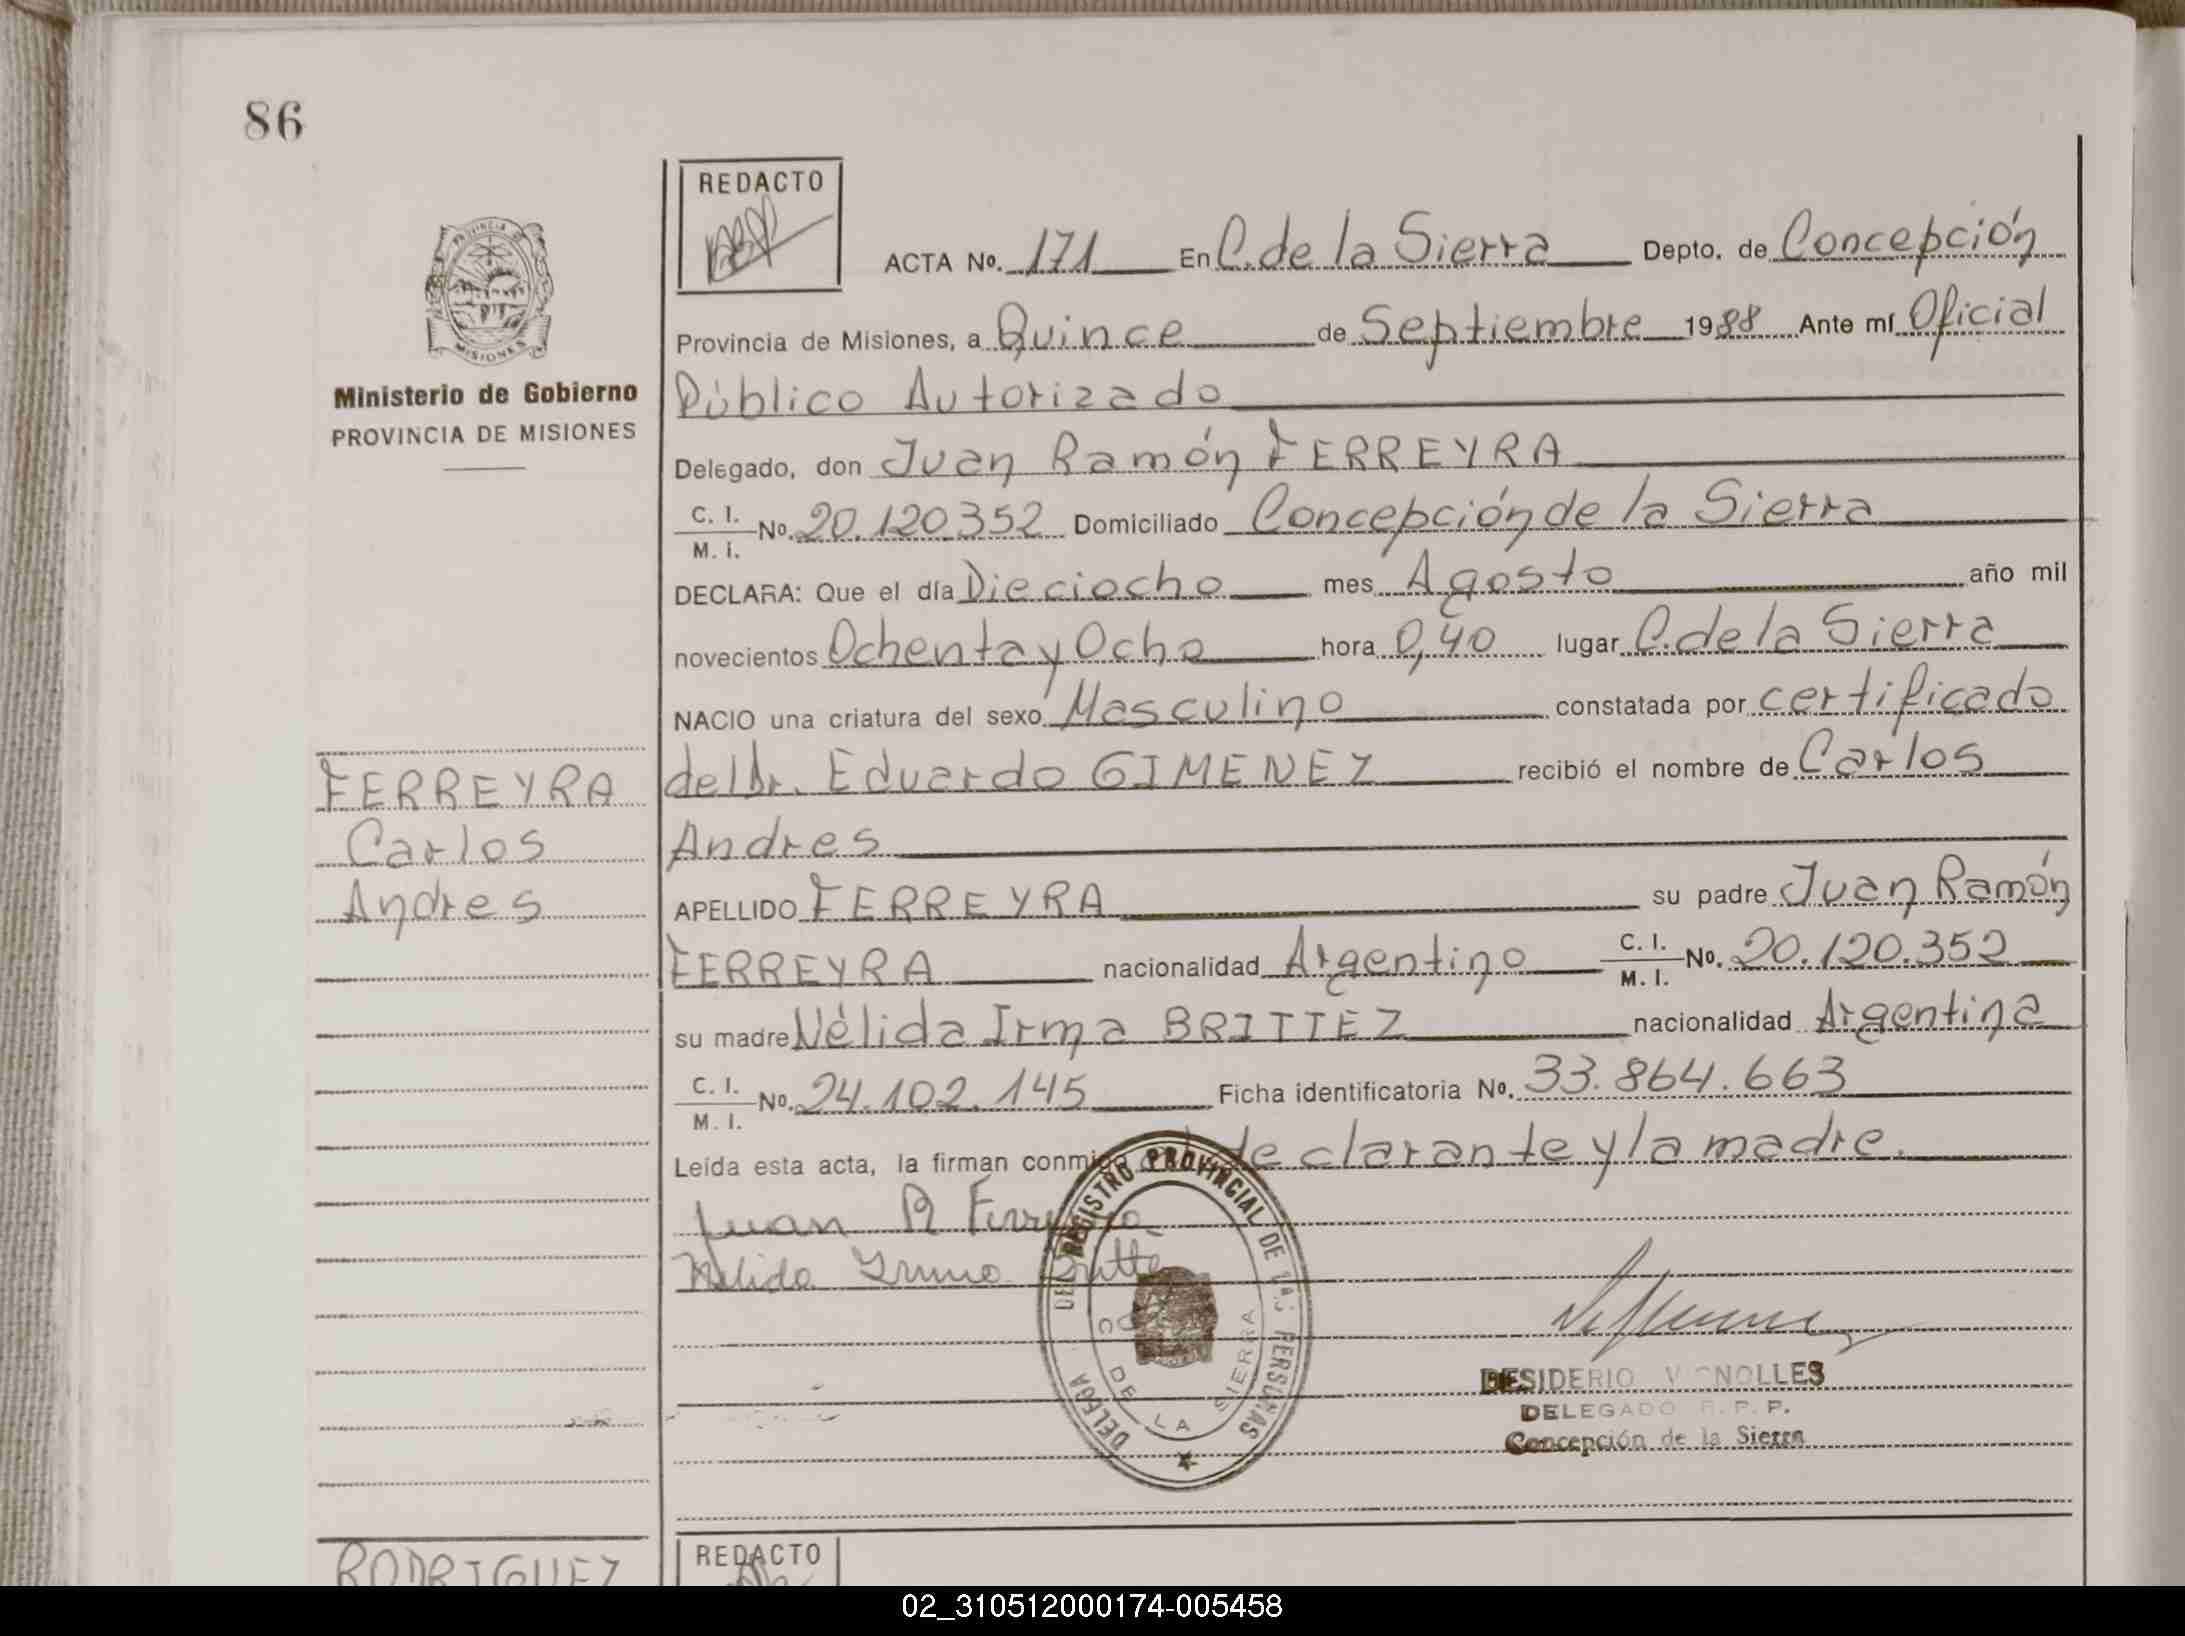 86
REDACTO
ACTA No. 171 En C. de la Sierra Depto. de Concepción
Provincia de Misiones, a Quince de Septiembre 1988 Ante mí Oficial
Público Autorizado
Delegado, don Juan Ramón FERREYRA
C. I. M. I. No. 20.120.352 Domiciliado Concepción de la Sierra
DECLARA: Que el día Dieciocho mes Agosto año mil
novecientos Ochenta y Ocho hora 0,40 lugar C. de la Sierra
NACIO una criatura del sexo Masculino constatada por certificado
del Dr. Eduardo GIMENEZ recibió el nombre de Carlos
Andres
APELLIDO FERREYRA su padre Juan Ramón
FERREYRA nacionalidad Argentino C. I. M. I. No. 20.120.352
su madre Nélida Irma BRITTEZ nacionalidad Argentina
C. I. M. I. No. 24.102.145 Ficha identificatoria No. 33.864.663
Leída esta acta, la firman conmigo declarante y la madre.
Juan R Ferreyra
Nelida Irma Britté
PROVINCIA DE
MISIONES
Ministerio de Gobierno
PROVINCIA DE MISIONES
FERREYRA
Carlos
Andres
REGISTRO PROVINCIAL DE LAS PERSONAS
DELEGA
DE LA SIERRA
DESIDERIO NOLLES
DELEGADO R. P. P.
Concepción de la Sierra
RODRIGUEZ
REDACTO
02_310512000174-005458